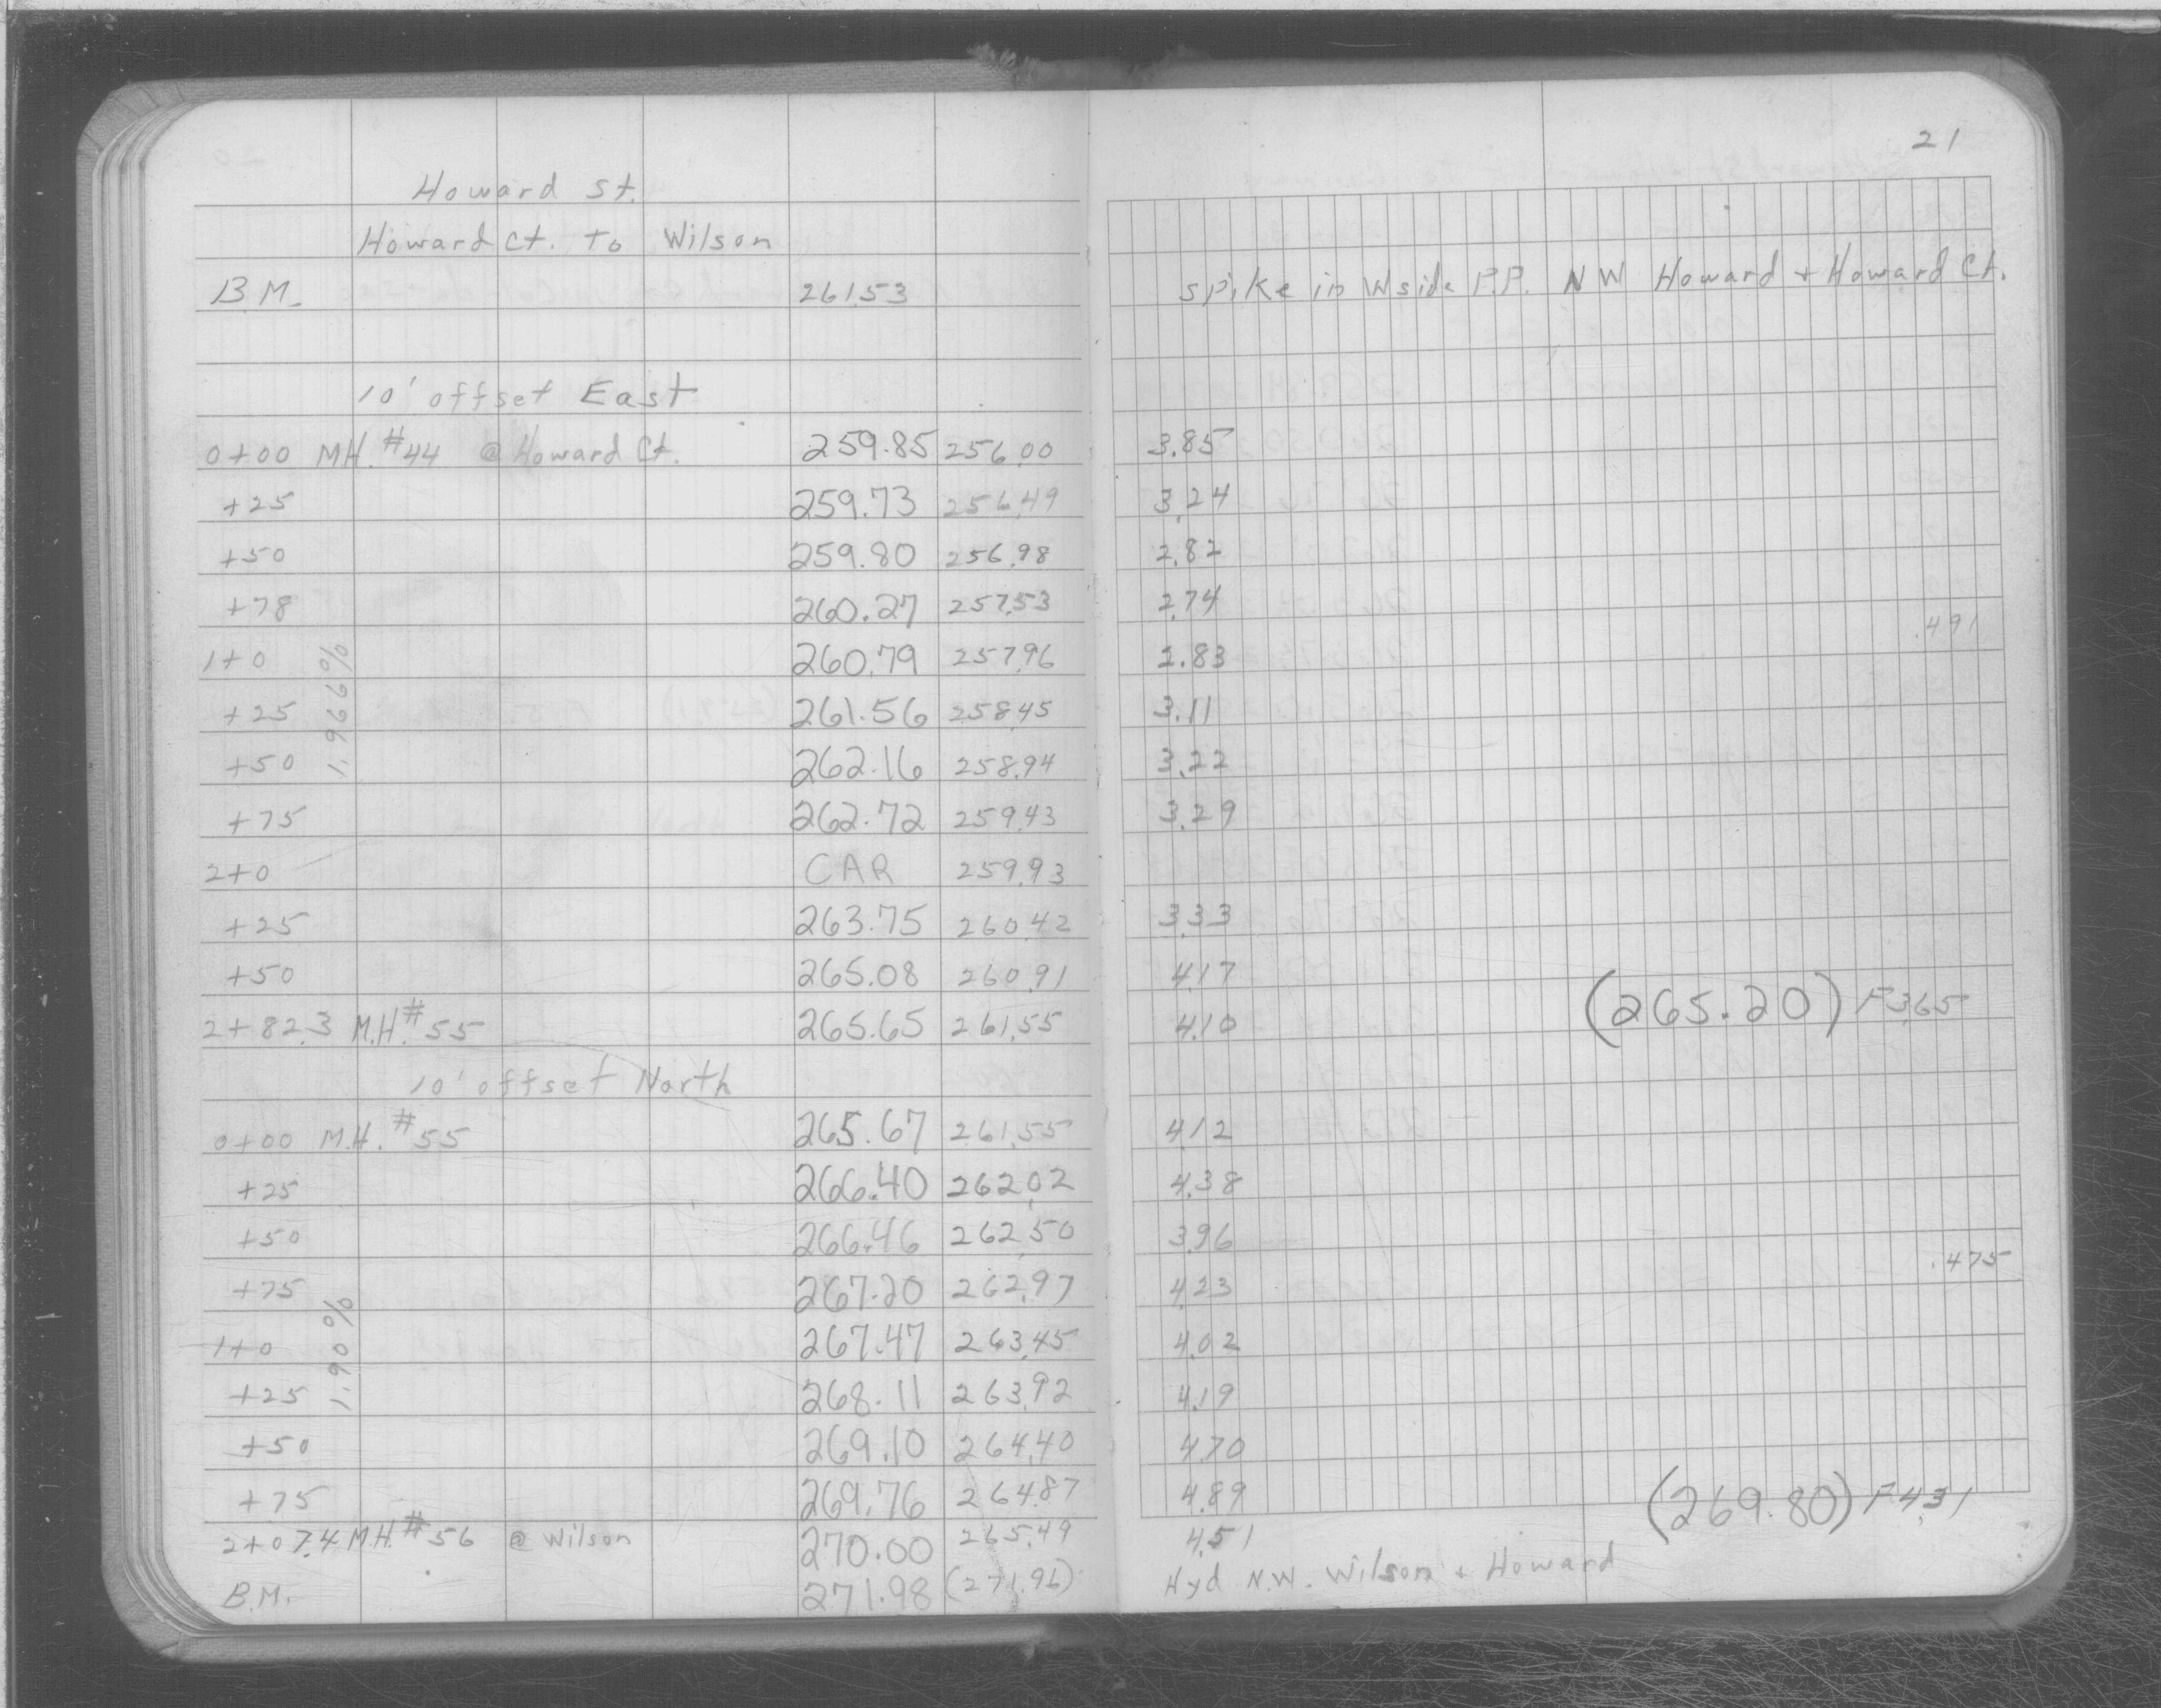 21
Howard St.
Howard Ct. To Wilson
B.M. 261.53 spike in W side P.P. NW Howard + Howard Ct.
10' offset East
0+00 MH. #44 @ Howard Ct. 259.85 256.00 3.85
+25 259.73 256.49 3.24
+50 259.80 256.98 2.82
+78 260.27 257.53 2.74
.491
1+0 260.79 257.96 2.83
1.966%
+25 261.56 258.45 3.11
+50 262.16 258.94 3.22
+75 262.72 259.43 3.29
2+0 CAR 259.93
+25 263.75 260.42 3.33
+50 265.08 260.91 4.17
(265.20) F3.65
2+82.3 M.H. #55 265.65 261.55 4.10
10' offset North
0+00 M.H. #55 265.67 261.55 4.12
+25 266.40 262.02 4.38
+50 266.46 262.50 3.96
.475
+75 267.20 262.97 4.23
1+0 267.47 263.45 4.02
1.90%
+25 268.11 263.92 4.19
+50 269.10 264.40 4.70
+75 269.76 264.87 4.89
(269.80) F4.31
2+07.4 M.H. #56 @ Wilson 270.00 265.49 4.51
B.M. 271.98 (271.96) Hyd N.W. Wilson + Howard